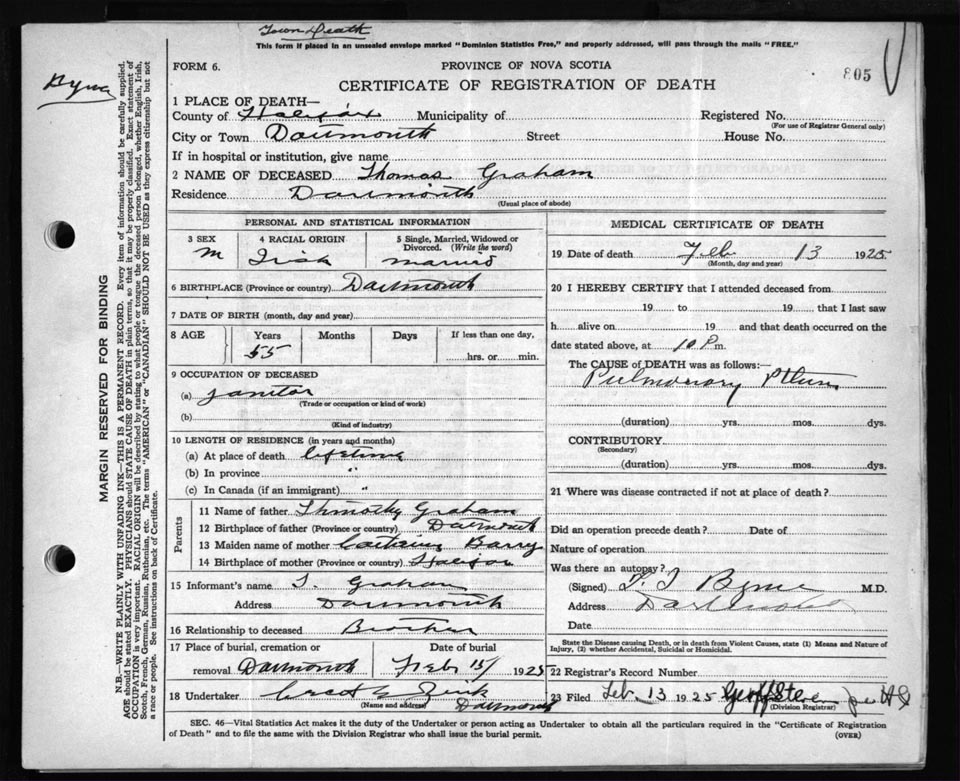 Town Death
This form if placed in an unsealed envelope marked "Dominion Statistics Free," and properly addressed, will pass through the mails "FREE."
FORM 6.
PROVINCE OF NOVA SCOTIA
805
CERTIFICATE OF REGISTRATION OF DEATH
1 PLACE OF DEATH—
County of Halifax Municipality of Registered No.
(For use of Registrar General only)
City or Town Dartmouth Street House No.
If in hospital or institution, give name
2 NAME OF DECEASED Thomas Graham
Residence Dartmouth
(Usual place of abode)
PERSONAL AND STATISTICAL INFORMATION
3 SEX 4 RACIAL ORIGIN 5 Single, Married, Widowed or Divorced. (Write the word)
M Irish married
6 BIRTHPLACE (Province or country) Dartmouth
7 DATE OF BIRTH (month, day and year)
8 AGE Years Months Days If less than one day,
55 hrs. or min.
9 OCCUPATION OF DECEASED
(a) janitor
(Trade or occupation or kind of work)
(b)
(Kind of industry)
10 LENGTH OF RESIDENCE (in years and months)
(a) At place of death lifetime
(b) In province "
(c) In Canada (if an immigrant) "
Parents
11 Name of father Timothy Graham
12 Birthplace of father (Province or country) Dartmouth
13 Maiden name of mother Barry
14 Birthplace of mother (Province or country) Halifax
15 Informant's name T. Graham
Address Dartmouth
16 Relationship to deceased Brother
17 Place of burial, cremation or removal Dartmouth Date of burial Feb 15/ 1925
18 Undertaker Zink
(Name and address) Dartmouth
MEDICAL CERTIFICATE OF DEATH
19 Date of death Feb 13 1925
(Month, day and year)
20 I HEREBY CERTIFY that I attended deceased from
19 to 19 that I last saw
h alive on 19 and that death occurred on the
date stated above, at 10 P m.
The CAUSE of DEATH was as follows:—
Pulmonary
(duration) yrs. mos. dys.
CONTRIBUTORY
(Secondary)
(duration) yrs. mos. dys.
21 Where was disease contracted if not at place of death?
Did an operation precede death? Date of
Nature of operation
Was there an autopsy?
(Signed) Byrne M.D.
Address Dartmouth
Date
State the Disease causing Death, or in death from Violent Causes, state (1) Means and Nature of
Injury, (2) whether Accidental, Suicidal or Homicidal.
22 Registrar's Record Number
23 Filed Feb. 13 1925
(Division Registrar)
SEC. 46—Vital Statistics Act makes it the duty of the Undertaker or person acting as Undertaker to obtain all the particulars required in the "Certificate of Registration
of Death" and to file the same with the Division Registrar who shall issue the burial permit. (OVER)
MARGIN RESERVED FOR BINDING
N.B.—WRITE PLAINLY WITH UNFADING INK—THIS IS A PERMANENT RECORD. Every item of information should be carefully supplied.
AGE should be stated EXACTLY. PHYSICIANS should STATE CAUSE OF DEATH in plain terms, so that it may be properly classified. Exact statement of
OCCUPATION is very important. RACIAL ORIGIN will be described by stating to what people or tongue the deceased person belonged, whether English, Irish,
Scotch, French, German, Russian, Ruthenian, etc. The terms "AMERICAN" or "CANADIAN" SHOULD NOT BE USED as they express citizenship but not
a race or people. See instructions on back of Certificate.